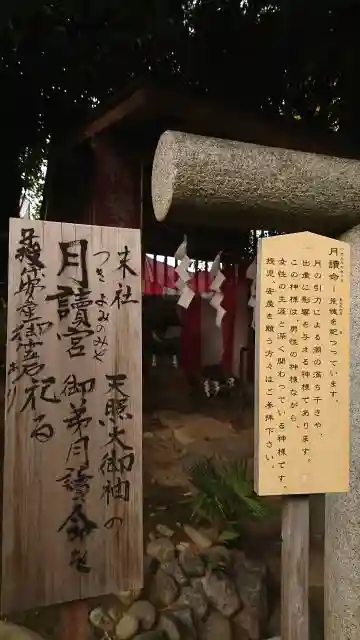 末社
月讀宮
つきよみのみや
天照大御神の
御弟月讀命を
祀る
月讀命―荒魂を祀つています。
月の引力による潮の満ち干きや、
出産に影響を与える神様であります。
この神様は、男性の神様ながら、
女性の生涯と深く関わっている神様です。
残児、安産を願う方々はご参拝下さい。